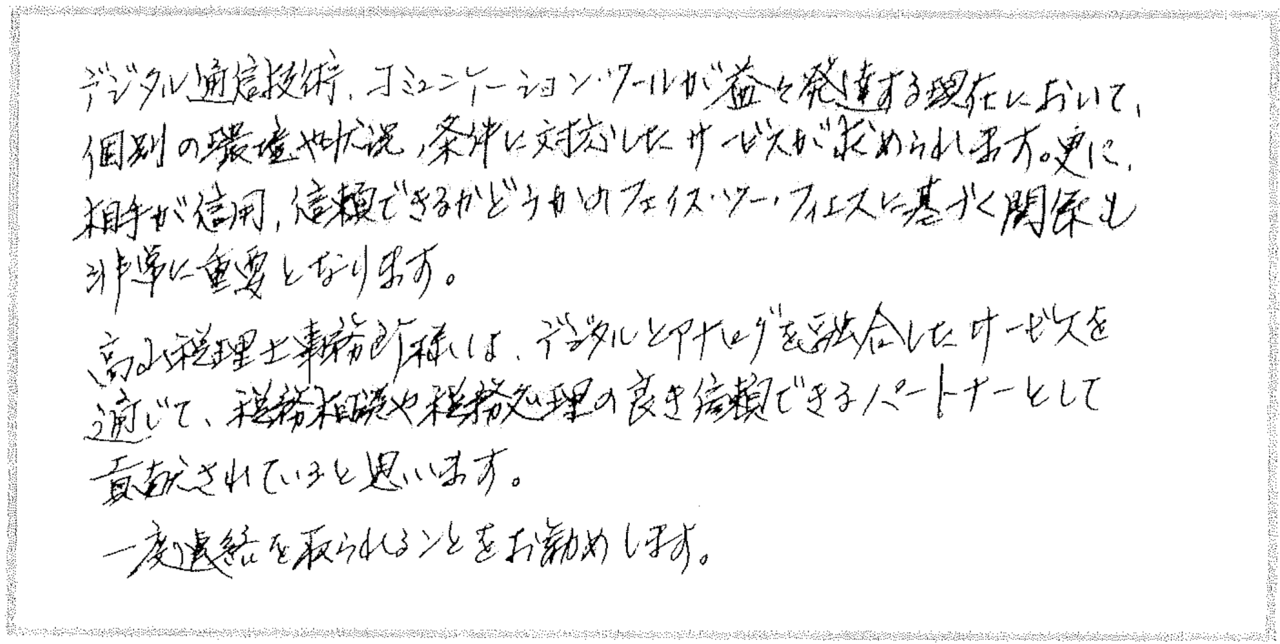 デジタル通信技術、コミュニケーション・ツールが益々発達する現在において、
個別の環境や状況、条件に対応したサービスが求められます。更に、
相手が信用、信頼できるかどうかのフェイス・ツー・フェイスに基づく関係も
非常に重要となります。
高山税理士事務所様は、デジタルとアナログを融合したサービスを
通じて、税務相談や税務処理の良き信頼できるパートナーとして
貢献されていると思います。
一度連絡を取られることをお勧めします。